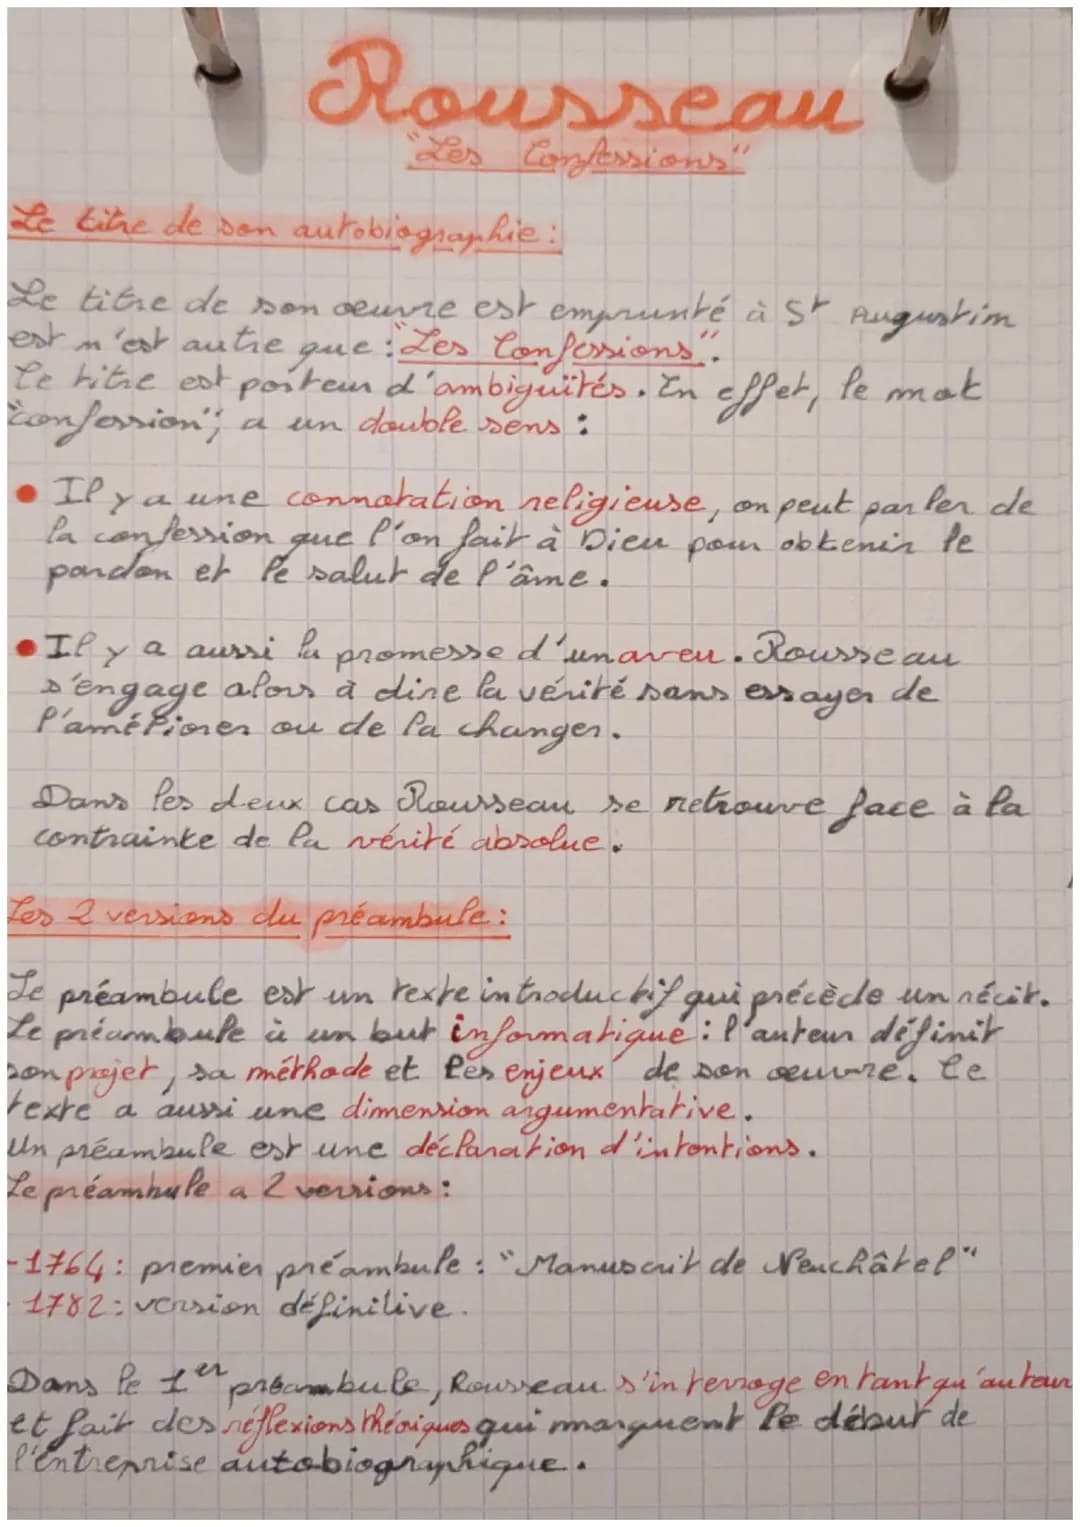 Rousseau
"Les Confessions"
Le titre de son autobiographie :
Le titre de son œuvre est emprunté à St Augustin
est n'est autre que : "Les Confessions".
Ce titre est porteur d'ambiguïtés. En effet, le mot
"confession", a un double sens :
• Il y a une connotation religieuse, on peut parler de
la confession que l'on fait à Dieu pour obtenir le
pardon et le salut de l'âme.
• Il y a aussi la promesse d'un aveu. Rousseau
s'engage alors à dire la vérité sans essayer de
l'améliorer ou de la changer.
Dans les deux cas Rousseau se retrouve face à la
contrainte de la vérité absolue.
Les 2 versions du préambule :
Le préambule est un texte introductif qui précède un récit.
Le préambule à un but informatique : l'auteur définit
son projet, sa méthode et les enjeux de son œuvre. Ce
texte a aussi une dimension argumentative.
Un préambule est une déclaration d'intentions.
Le préambule a 2 versions :
-1764 : premier préambule : "Manuscrit de Neuchâtel"
- 1782 : version définitive.
Dans le 1er préambule, Rousseau s'interroge en tant qu'auteur
et fait des réflexions théoriques qui marquent le début de
l'entreprise autobiographique.